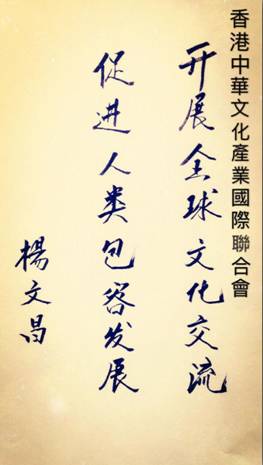 香港中華文化產業國際聯合會
开展全球文化交流
促进人类包容发展
楊文昌